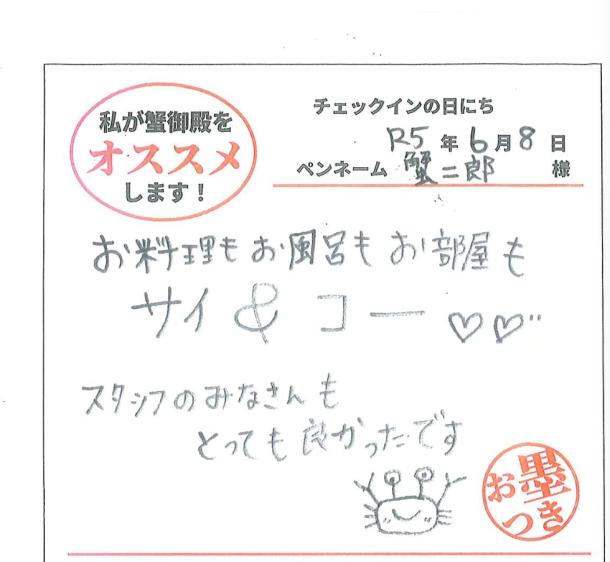 私が蟹御殿を
オススメ
します！
チェックインの日にち
R5 年 6 月 8 日
ペンネーム 蟹二郎 様
お料理もお風呂もお部屋も
サイ & コー ♡♡
スタッフのみなさんも
とっても良かったです
お墨つき